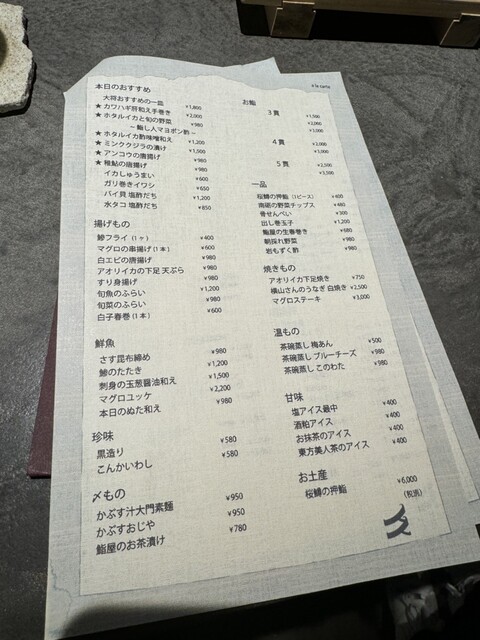 本日のおすすめ
大将おすすめの一皿 ¥1,800
★ カワハギ肝和え手巻き ¥2,000
★ ホタルイカと旬の野菜 ¥980
～鮨し人マヨポン酢～
★ ホタルイカ酢味噌和え ¥1,200
★ ミンククジラの漬け ¥1,500
★ アンコウの唐揚げ ¥980
★ 稚鮎の唐揚げ ¥980
イカしゅうまい ¥600
ガリ巻きイワシ ¥650
バイ貝 塩酢だち ¥1,200
水タコ 塩酢だち ¥850
揚げもの
鯵フライ (1ヶ) ¥400
マグロの串揚げ (1本) ¥600
白エビの唐揚げ ¥980
アオリイカの下足 天ぷら ¥980
すり身揚げ ¥980
旬魚のふらい ¥1,200
旬菜のふらい ¥980
白子春巻 (1本) ¥600
鮮魚
さす昆布締め ¥980
鯵のたたき ¥1,200
刺身の玉葱醤油和え ¥1,500
マグロユッケ ¥2,200
本日のぬた和え ¥980
珍味
黒造り ¥580
こんかいわし ¥580
〆もの
かぶす汁大門素麺 ¥950
かぶすおじや ¥950
鮨屋のお茶漬け ¥780
お鮨
3貫 ¥1,500
¥2,000
4貫 ¥2,000
5貫 ¥2,500
一品
桜鱒の押鮨 (1ピース) ¥400
南砺の野菜チップス ¥480
骨せんべい ¥300
出し巻玉子 ¥1,200
鮨屋の生春巻き ¥680
朝採れ野菜 ¥980
岩もずく酢 ¥980
焼きもの
アオリイカ下足焼き ¥750
横山さんのうなぎ 白焼き ¥2,500
マグロステーキ ¥3,000
温もの
茶碗蒸し 梅あん ¥500
茶碗蒸し ブルーチーズ ¥980
茶碗蒸し このわた ¥980
甘味
塩アイス最中 ¥400
酒粕アイス ¥400
お抹茶のアイス ¥400
東方美人茶のアイス ¥400
お土産
桜鱒の押鮨 ¥6,000
(税満)